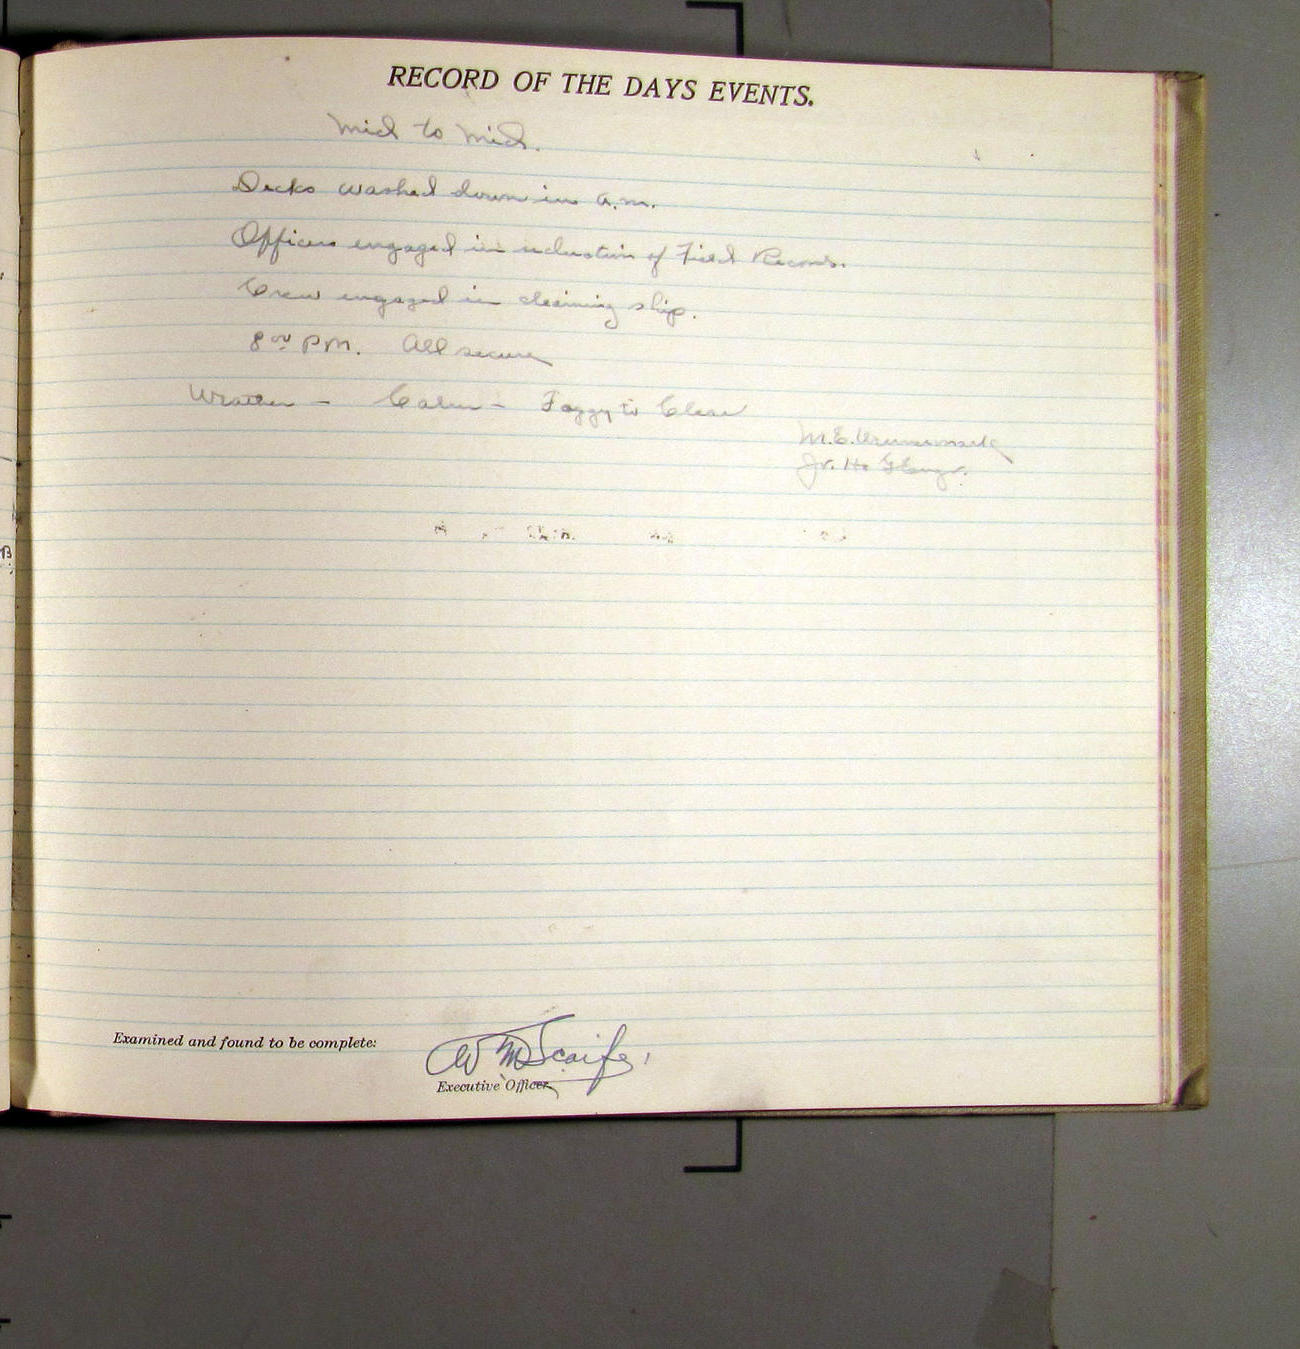 RECORD OF THE DAYS EVENTS.
Mid to Mid.
Decks washed down in a.m.
Officers engaged in reduction of Field Records.
Crew engaged in cleaning ship.
8 00 PM. All secure
Weather - Calm - Foggy to Clear
M.E. Wennermark
Jr. H. & G. Engr.
Examined and found to be complete:
W M Scaife,
Executive Officer